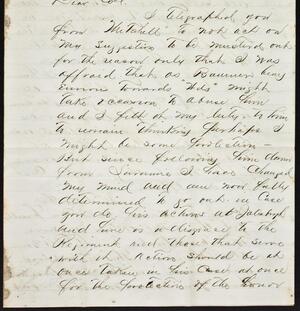 Dear Col.
I telegraphed you
from Mitchell to not act on
my suggestion to be mustered out
for the reason only that I was
afraid that as
towards "this" might
take occasion to abuse him
and I felt it my duty to him
to remain thinking perhaps I
might be some protection —
But since following him down
from I have changed
my mind and am now fully
determined to go out in case
you do his actions at
and here is a disgrace to the
Regiment and those that serve
with it action should be at
once taken in his case at once
for the protection of the honor